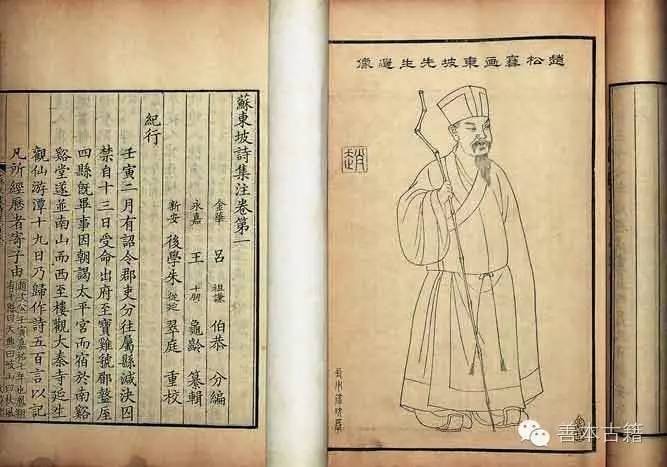 趙松雪畫東坡先生遺像
蘇東坡詩集注卷第一
金華 呂 祖謙 伯恭 分編
永嘉 王 十朋 龜齡 纂輯
新安 後學朱 從延 翠庭 重校
紀行
壬寅二月有詔令郡吏分往屬縣減決囚
禁自十三日受命出府至寶雞虢郿盩厔
四縣旣畢事因朝謁太平宮而宿於南谿
谿堂遂並南山而西至樓觀大秦寺延生
觀仙游潭十九日乃歸作詩五百言以記
凡所經歷者寄子由
善本古籍